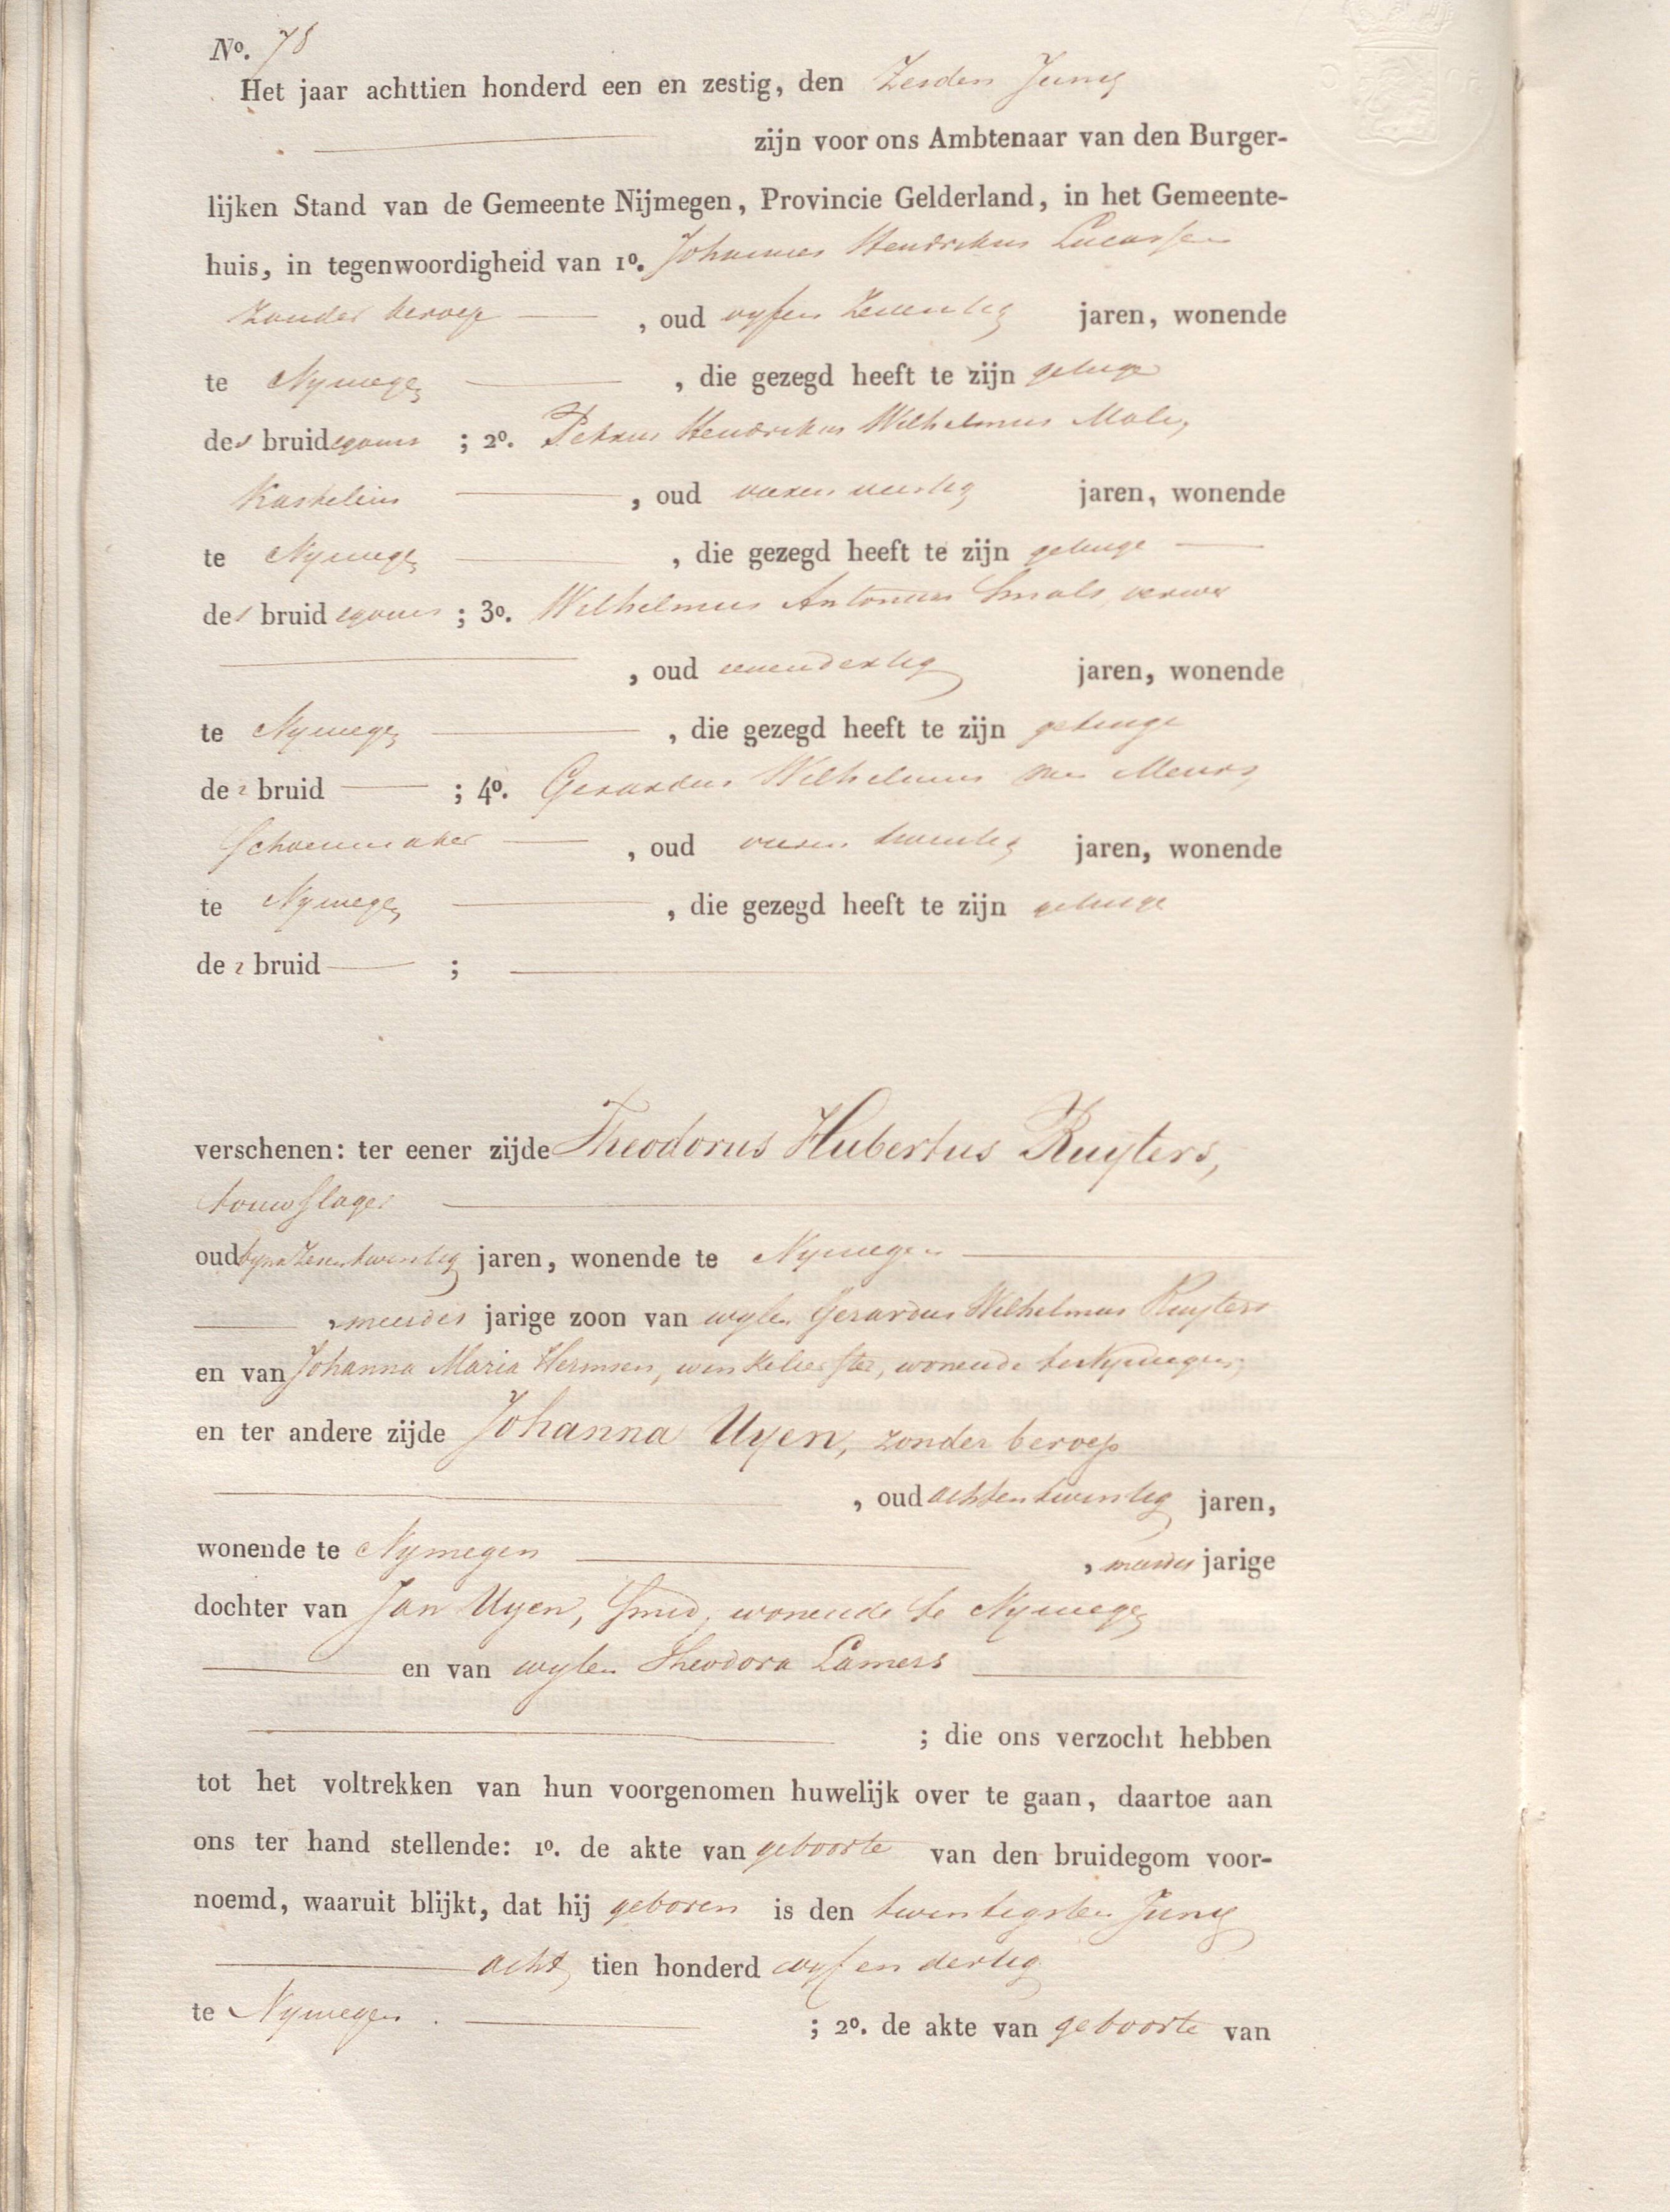 No. 78
Het jaar achttien honderd een en zestig, den Zesden Juny
zijn voor ons Ambtenaar van den Burger-
lijken Stand van de Gemeente Nijmegen, Provincie Gelderland, in het Gemeente-
huis, in tegenwoordigheid van 1o. Johannes Hendrikus Lucassen
zonder beroep , oud vyfen Zeventig jaren, wonende
te Nymegen , die gezegd heeft te zijn getuige
des bruidegoms ; 2o. Petrus Hendrikus Wilhelmus
Kastelein , oud jaren, wonende
te Nymegen , die gezegd heeft te zijn getuige
des bruidegoms ; 3o. Wilhelmus Antonius Smals verwer
, oud eenendertig jaren, wonende
te Nymegen , die gezegd heeft te zijn getuige
der bruid ; 4o. Gerardus Wilhelmus van Meurs,
Schoenmaker , oud twintig jaren, wonende
te Nymegen , die gezegd heeft te zijn getuige
der bruid ;
verschenen: ter eener zijde Theodorus Hubertus Ruyters,
touwslager
oud byna Zesentwintig jaren, wonende te Nymegen
, meerder jarige zoon van wylen Gerardus Wilhelmus Ruyters
en van Johanna Maria Hermsen, winkelierster, wonende te Nymegen,
en ter andere zijde Johanna Uyen, zonder beroep
, oud achtentwintig jaren,
wonende te Nymegen , meerder jarige
dochter van Jan Uyen, Smid, wonende te Nymegen
en van wylen Theodora Lamers
; die ons verzocht hebben
tot het voltrekken van hun voorgenomen huwelijk over te gaan, daartoe aan
ons ter hand stellende: 1o. de akte van geboorte van den bruidegom voor-
noemd, waaruit blijkt, dat hij geboren is den twintigsten Juny
acht tien honderd vyf en dertig
te Nymegen ; 2o. de akte van geboorte van